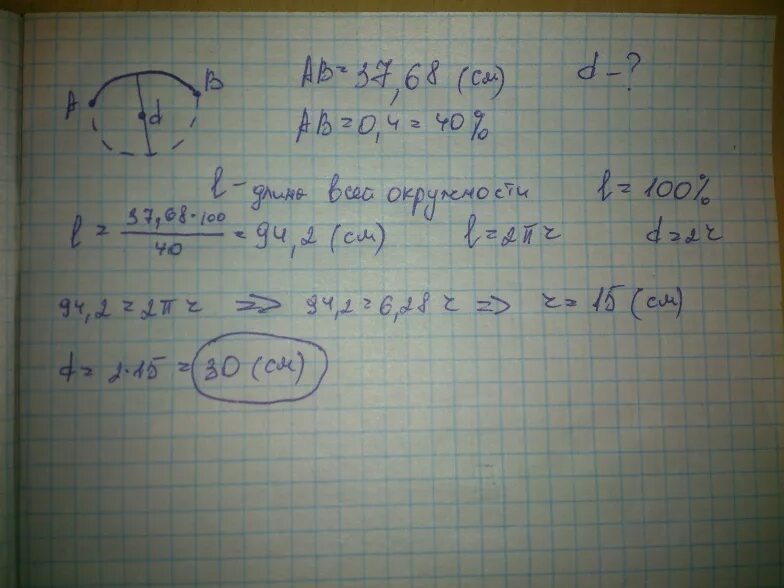 A B d
AB = 37,68 (см) d - ?
AB = 0,4 = 40%
l - длина всей окружности l = 100%
l = 37,68·100 / 40 = 94,2 (см) l = 2πr d = 2r
94,2 = 2πr => 94,2 = 6,28 r => r = 15 (см)
d = 2·15 = 30 (см)